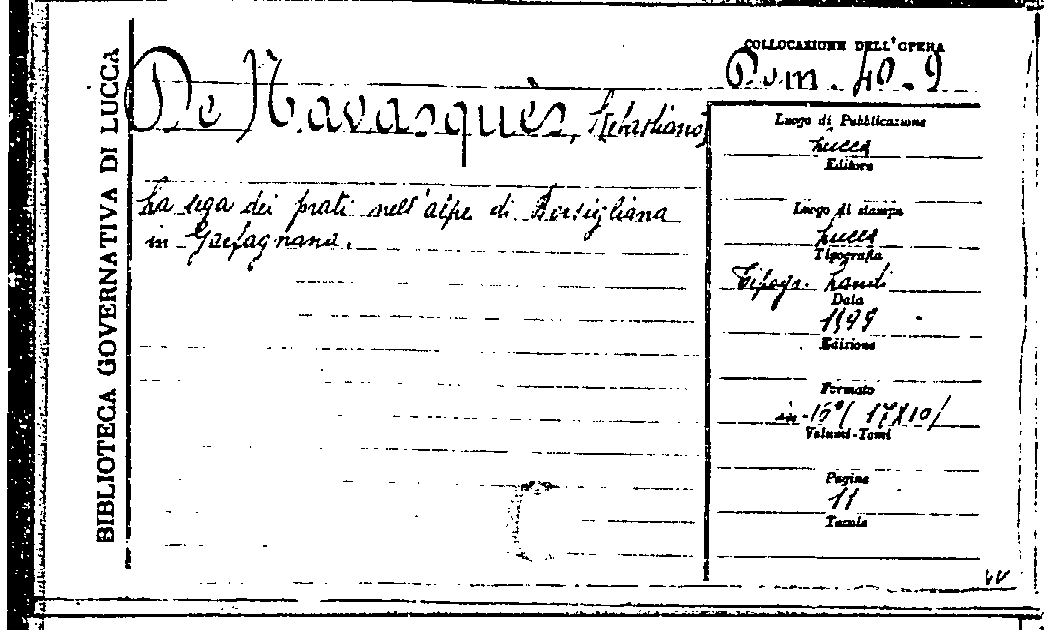 BIBLIOTECA GOVERNATIVA DI LUCCA
COLLOCAZIONE DELL'OPERA
Dom. 40.9
De Navasquès, Sebastiano
La sega dei prati nell'alpe di Borsigliana
in Garfagnana.
Luogo di Pubblicazione
Lucca
Editore
Luogo di stampa
Lucca
Tipografia
Tipogr. Landi
Data
Edizione
Formato
in-16° (17X10)
Volumi-Tomi
Pagine
11
Tavole